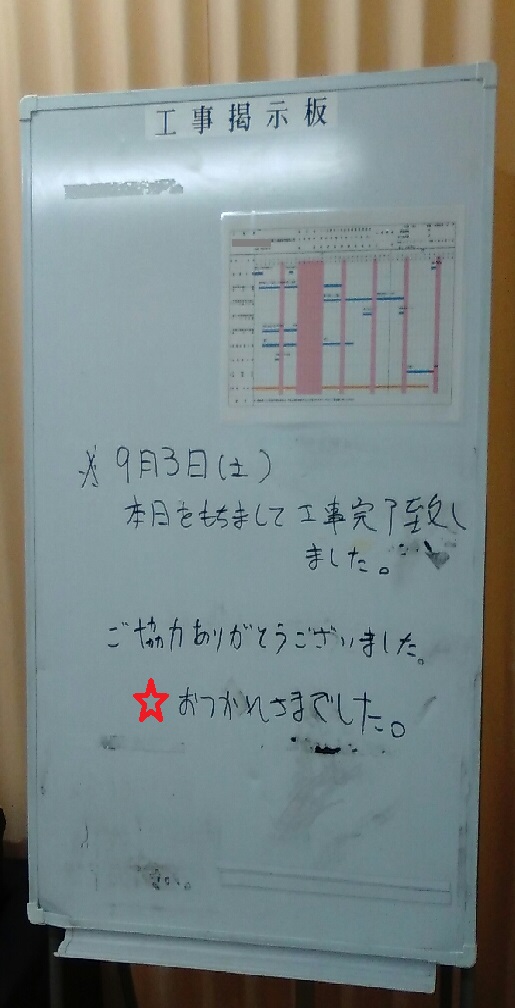 工事掲示板
※9月3日(土)
本日をもちまして工事完了致し
ました。
ご協力ありがとうございました。
☆おつかれさまでした。